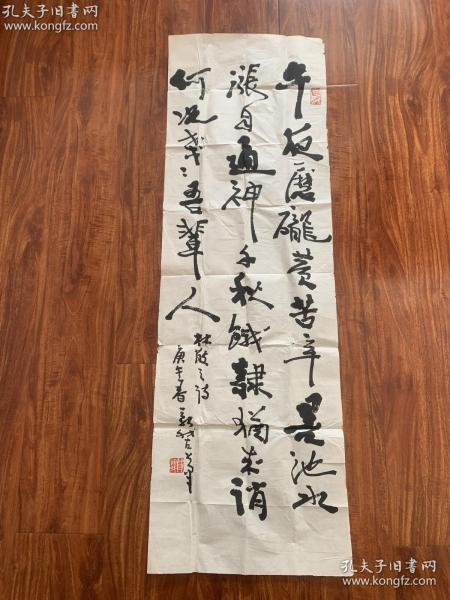 孔夫子旧书网
www.kongfz.com
午夜磨礲苦辛墨池水
漲自通神千秋餓隸猶成誚
何况戔々吾輩人
林散之诗
庚午春
孔夫子旧书网
www.kongfz.com